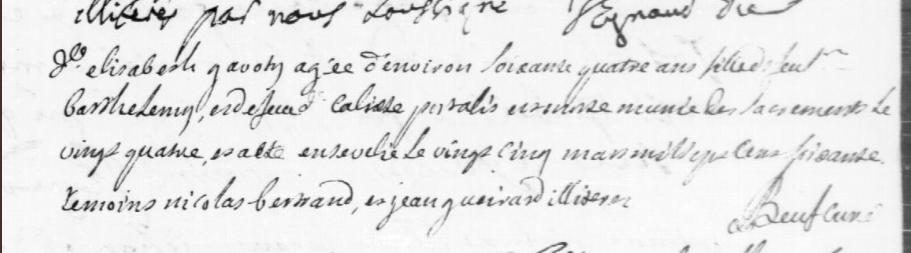 illiterés par nous soussigné
Dlle elisabeth gavoty agée d'environ soixante quatre ans fille de feu sr
barthelemy, et de feue de Calixte est morte munie des sacrements le
vingt quatre, et a été ensevelie le vingt cinq mars mil sept cens soixante.
temoins nicolas bertrand, et jean gueirard illiteres
curé